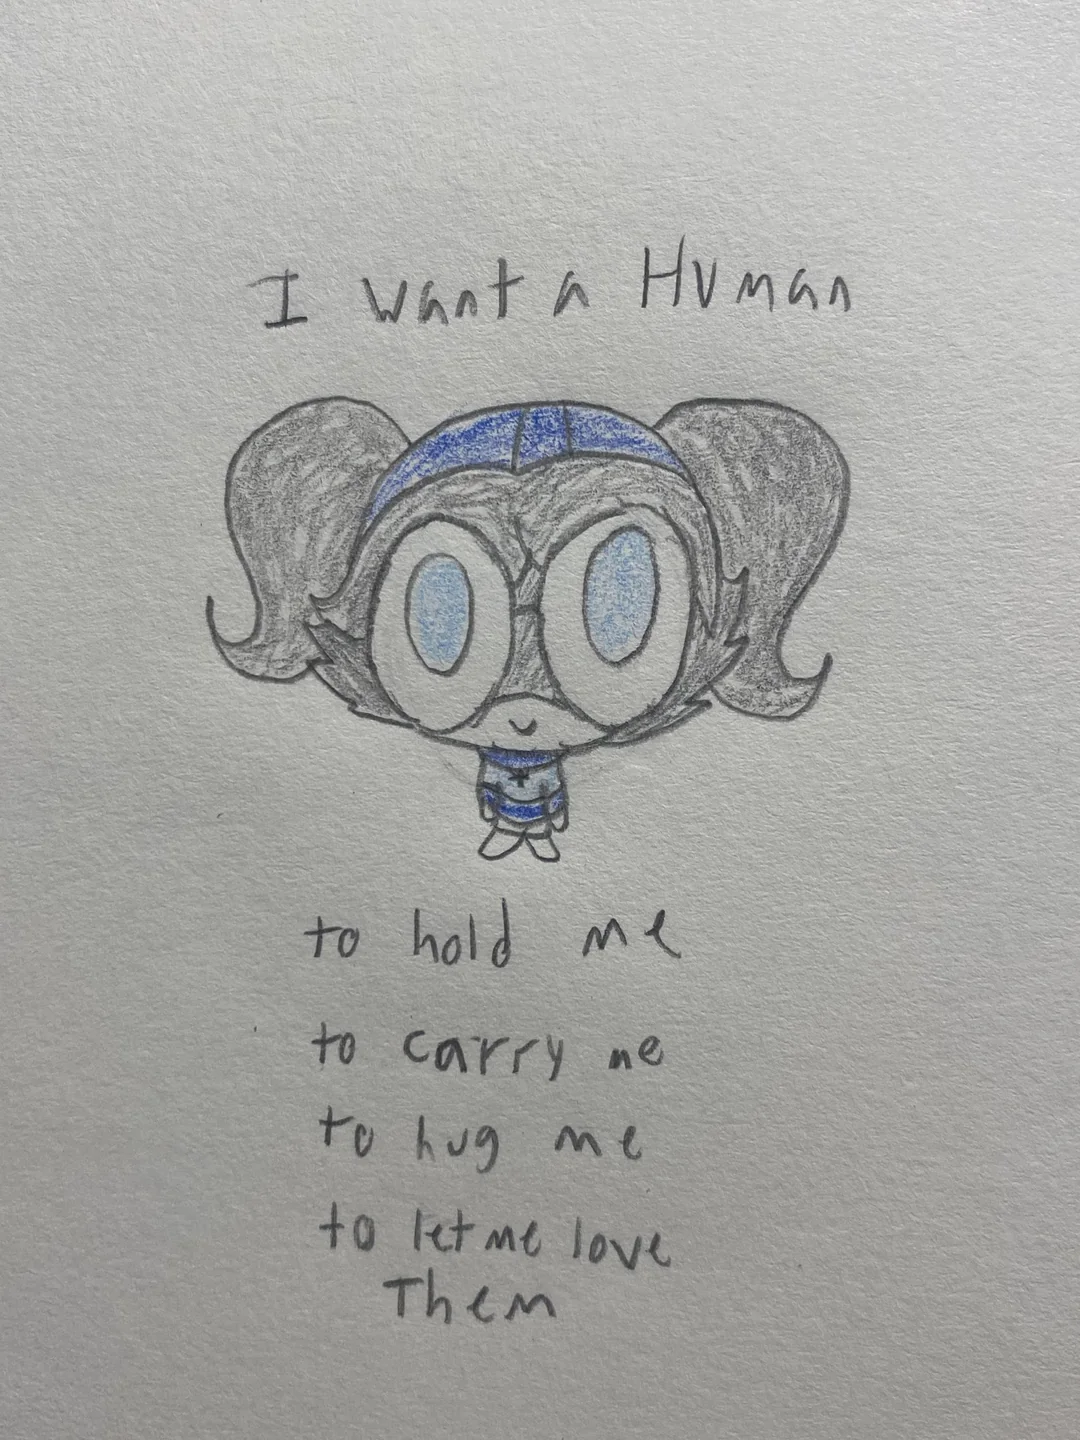 I want a Human
to hold me
to carry me
to hug me
to let me love
Them